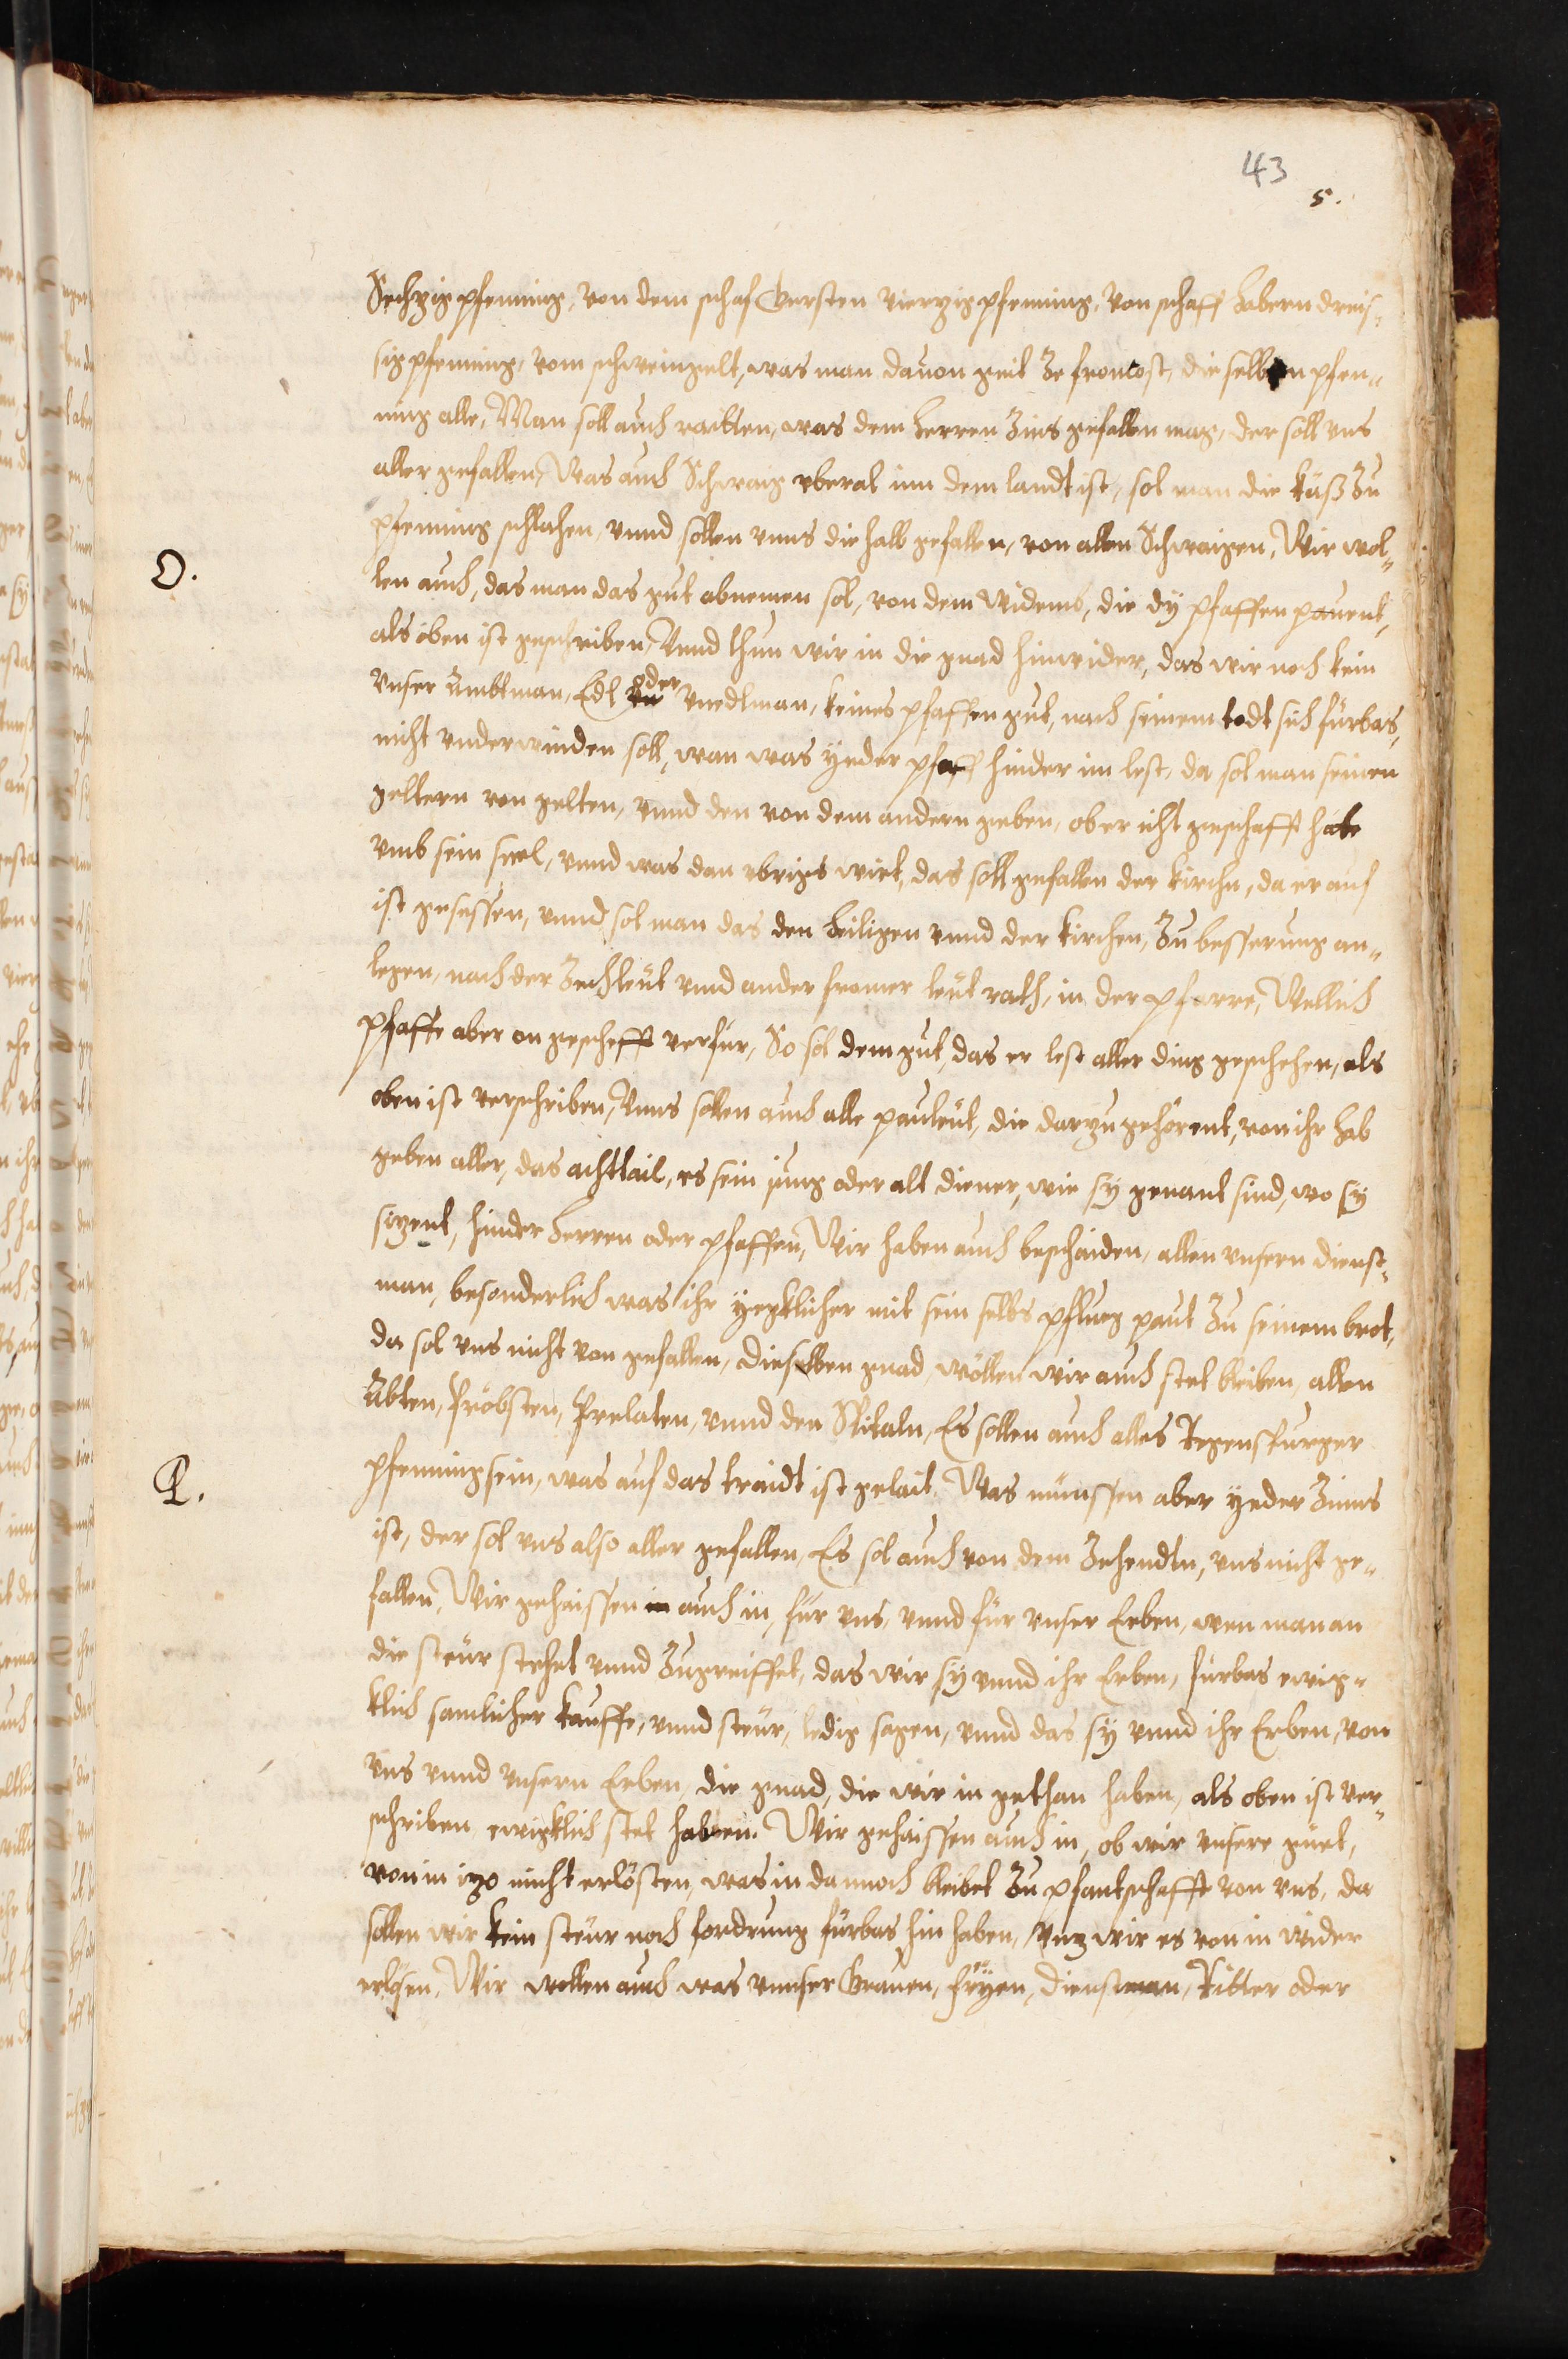 43
5.
Sechzig pfenning, von dem schaf Gersten viertzig pfenning, von schaff habern dreis¬
sig pfenning, vom schweingelt, was man dauon geit Ze froncost, die selben pfen¬
ning alle, Man soll auch raitten, was dem herren Zins gefallen mag, der soll vns
aller gefallen, Was auch Schwaig vberal inn dem landt ist, sol man die käß Zu
pfenning schlahen, vnnd sollen vnns die halb gefallen, von allen Schwaigen, Wir wol¬
O.
len auch, das man das gut abnemen sol, von dem Widemb, die dy pfaffen pauent,
als oben ist geschriben, Vnnd thun wir in die gnad hinwider, das wir noch kein
Vnser Ambtman, Edl oder vnedlman, keines pfaffen gut, nach seinem todt sich fürbas,
nicht vnderwinden soll, wan was yeder pfaff hinder im lest, da sol man seinen
geltern von gelten, vnnd den von dem andern geben, ob er icht geschafft habe
vmb sein seel, vnnd was dan vbrigs wirt, das soll gefallen der kirchn, da er auf
ist gesessen, vnnd sol man das den heiligen vnnd der kirchen, Zu besserung an¬
legen, nach der Zechleüt vnd ander fromer leüt rath, in der pfarre, Wellich
pfaffe aber on gescheft verfür, So sol dem gut, das er lest aller ding geschehen, als
oben ist verschriben, Vnns sollen auch alle pauleüt, die darzu gehörent, von ihr hab
geben aller, das achttail, es sein jung oder alt diener, wie sy genant sind, wo sy
sizent, hinder herren oder pfaffen, Wir haben auch beschaiden, allen vnsern dienst¬
man, besonderlich was ihr yegklicher mit sein selbs pflueg paut Zu seinem brot,
da sol vns nicht von gefallen, dieselben gnad, wöllen wir auch stet bleiben, allen
Äbten, Pröbsten, Prelaten, vnnd den Spitaln, Es sollen auch alles Regenspurger
P.
pfenning sein, was auf das traidt ist gelait, Was münssen aber yeder Zinns
ist, der sol vns also aller gefallen, Es sol auch von dem Zehendtn, vns nicht ge¬
fallen, Wir gehaissen auch in, für vns, vnnd für vnser Erben, wen man an
die steür stehet vnnd Zugreiffet, das wir sy vnnd ihr Erben, fürbas ewig¬
klich samlicher kauffe, vnnd steür, ledig sagen, vnnd das sy vnnd ihr Erben, von
vns vnnd vnsern Erben, die gnad, die wir in gethan haben, als oben ist ver¬
schriben, ewigklich stet haben. Wir gehaissen auch in, ob wir vnsere guet,
von in izo nicht erlösten, was in dannoch bleibet Zu pfantschafft von vns, da
sollen wir kein steür noch fordrung fürbas hin haben, vnz wir es von in wider
erlösen, Wir wollen auch was vnnser Grauen, fryen, dienstman, Ritter oder